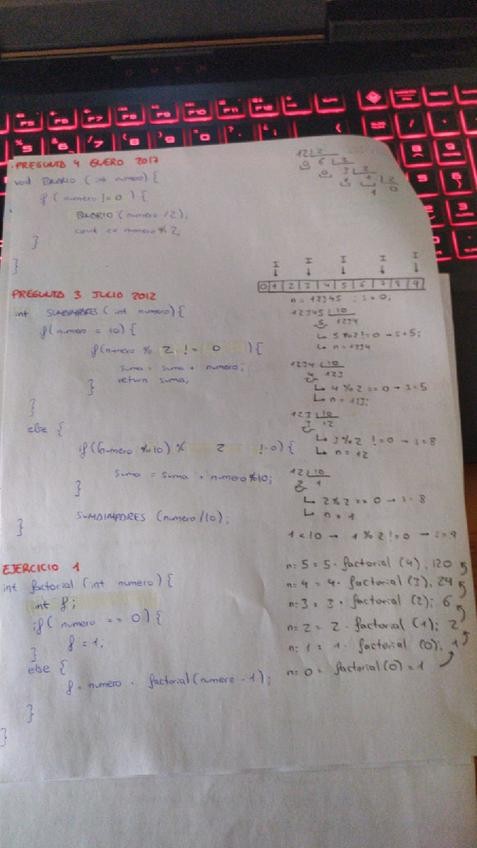 PREGUNTA 4 ENERO 2017
void BINARIO (int numero) {
if (numero != 0) {
BINARIO (numero /2);
cout << numero % 2;
}
}
12 2
0 6 2
0 3 2
1 1 2
1 0
PREGUNTA 3 JULIO 2012
int SUMAIMPARES (int numero) {
if (numero = 10) {
if (numero % 2 != 0 ) {
suma = suma + numero;
}
return suma;
}
else {
if ((numero % 10) % 2 != 0) {
suma = suma + numero % 10;
}
SUMAIMPARES (numero /10);
}
I I I I I
0 1 2 3 4 5 6 7 8 9
n = 12345 ; s = 0;
12345 10
5 1234
5 % 2 != 0 → s = 5;
n = 1234
1234 10
4 123
4 % 2 == 0 → s = 5
n = 123;
123 10
3 12
3 % 2 != 0 → s = 8
n = 12
12 10
2 1
2 % 2 == 0 → s = 8
n = 1
1 < 10 → 1 % 2 != 0 → s = 9
EJERCICIO 1
int factorial (int numero) {
int f;
if (numero == 0) {
f = 1;
}
else {
f = numero · factorial (numero - 1);
}
}
n: 5 = 5 · factorial (4), 120
n: 4 = 4 · factorial (3), 24
n: 3 = 3 · factorial (2); 6
n: 2 = 2 · factorial (1); 2
n: 1 = 1 · factorial (0); 1
n: 0 = factorial (0) = 1